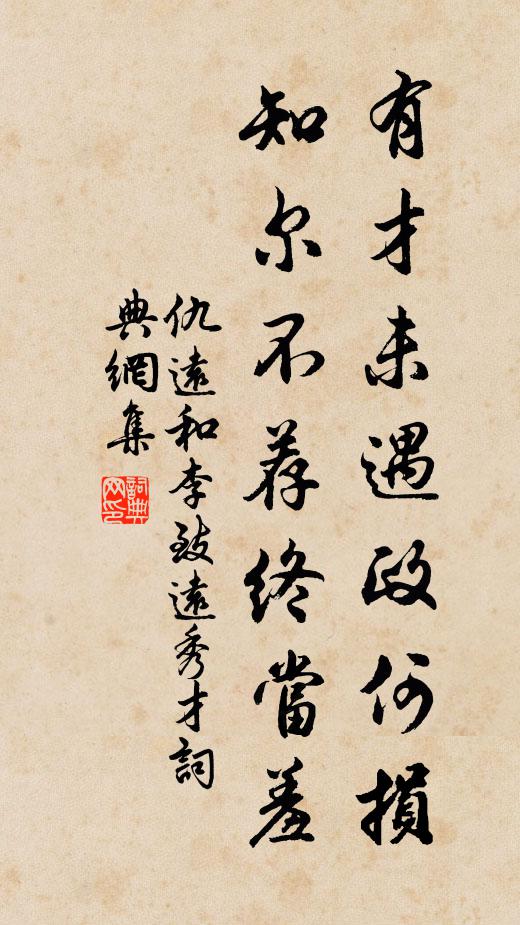 有才未遇政何損
知尔不荐終當羞
仇遠和李致遠秀才詞
典網集
詞典网印